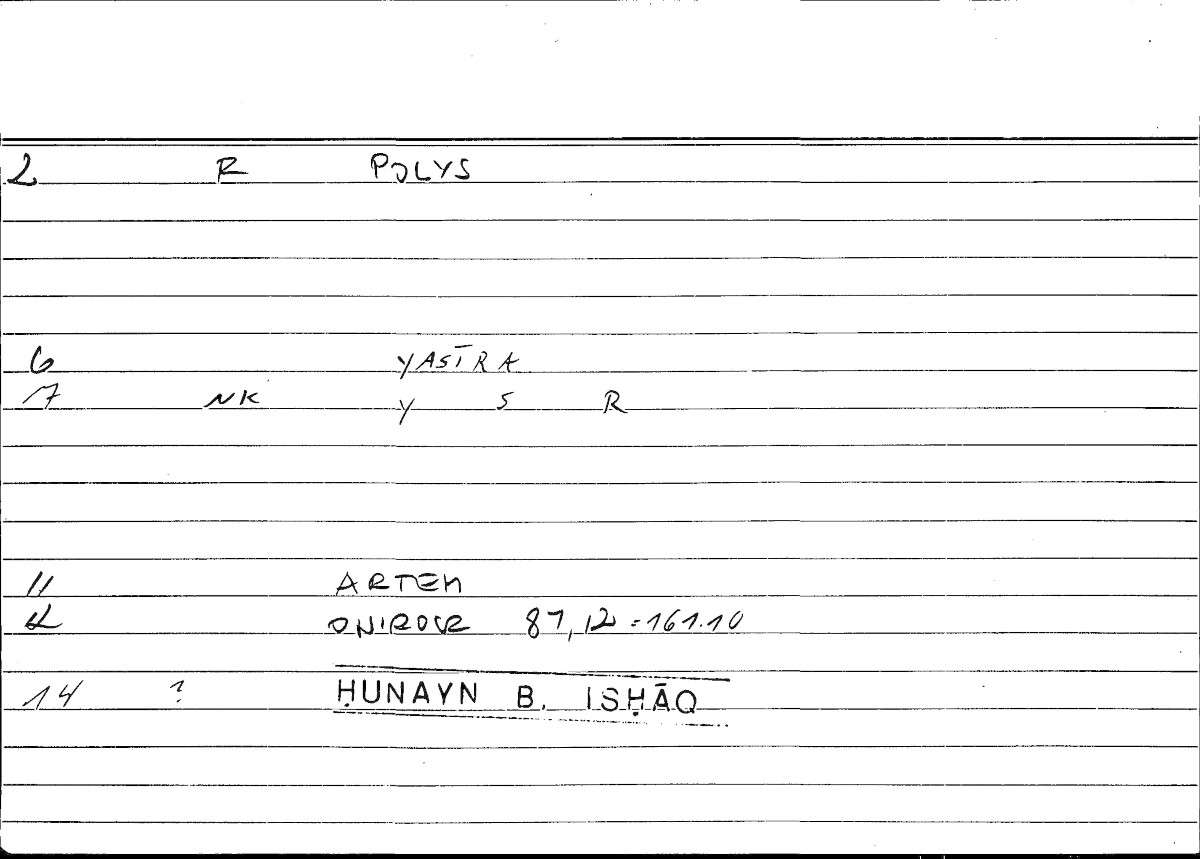 2 R POLYS
6 YASĪRA
7 NK Y S R
11 ARTEM
12 ONIROCR 87,12=161.10
14 ? ḤUNAYN B. ISḤĀQ